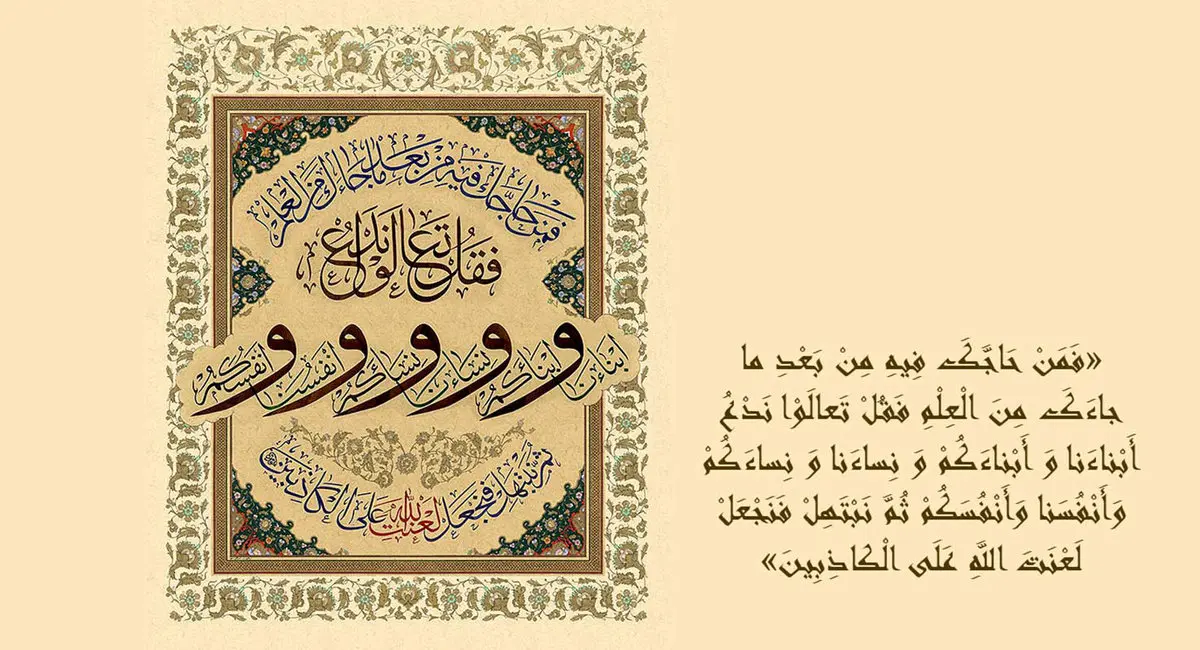 فمن حاجك فيه من بعد ما جاءك من العلم
فقل تعالوا ندع
ابناءنا و ابناءكم و نساءنا و نساءكم و انفسنا و انفسكم
ثم نبتهل فنجعل لعنت الله علی الکاذبین
«فَمَنْ حَاجَّكَ فِيهِ مِنْ بَعْدِ ما
جاءَكَ مِنَ الْعِلْمِ فَقُلْ تَعالَوْا نَدْعُ
أَبْناءَنا وَ أَبْناءَكُمْ وَ نِساءَنا وَ نِساءَكُمْ
وَأَنْفُسَنا وَأَنْفُسَكُمْ ثُمَّ نَبْتَهِلْ فَنَجْعَلْ
لَعْنَتَ اللَّهِ عَلَى الْكاذِبِينَ»